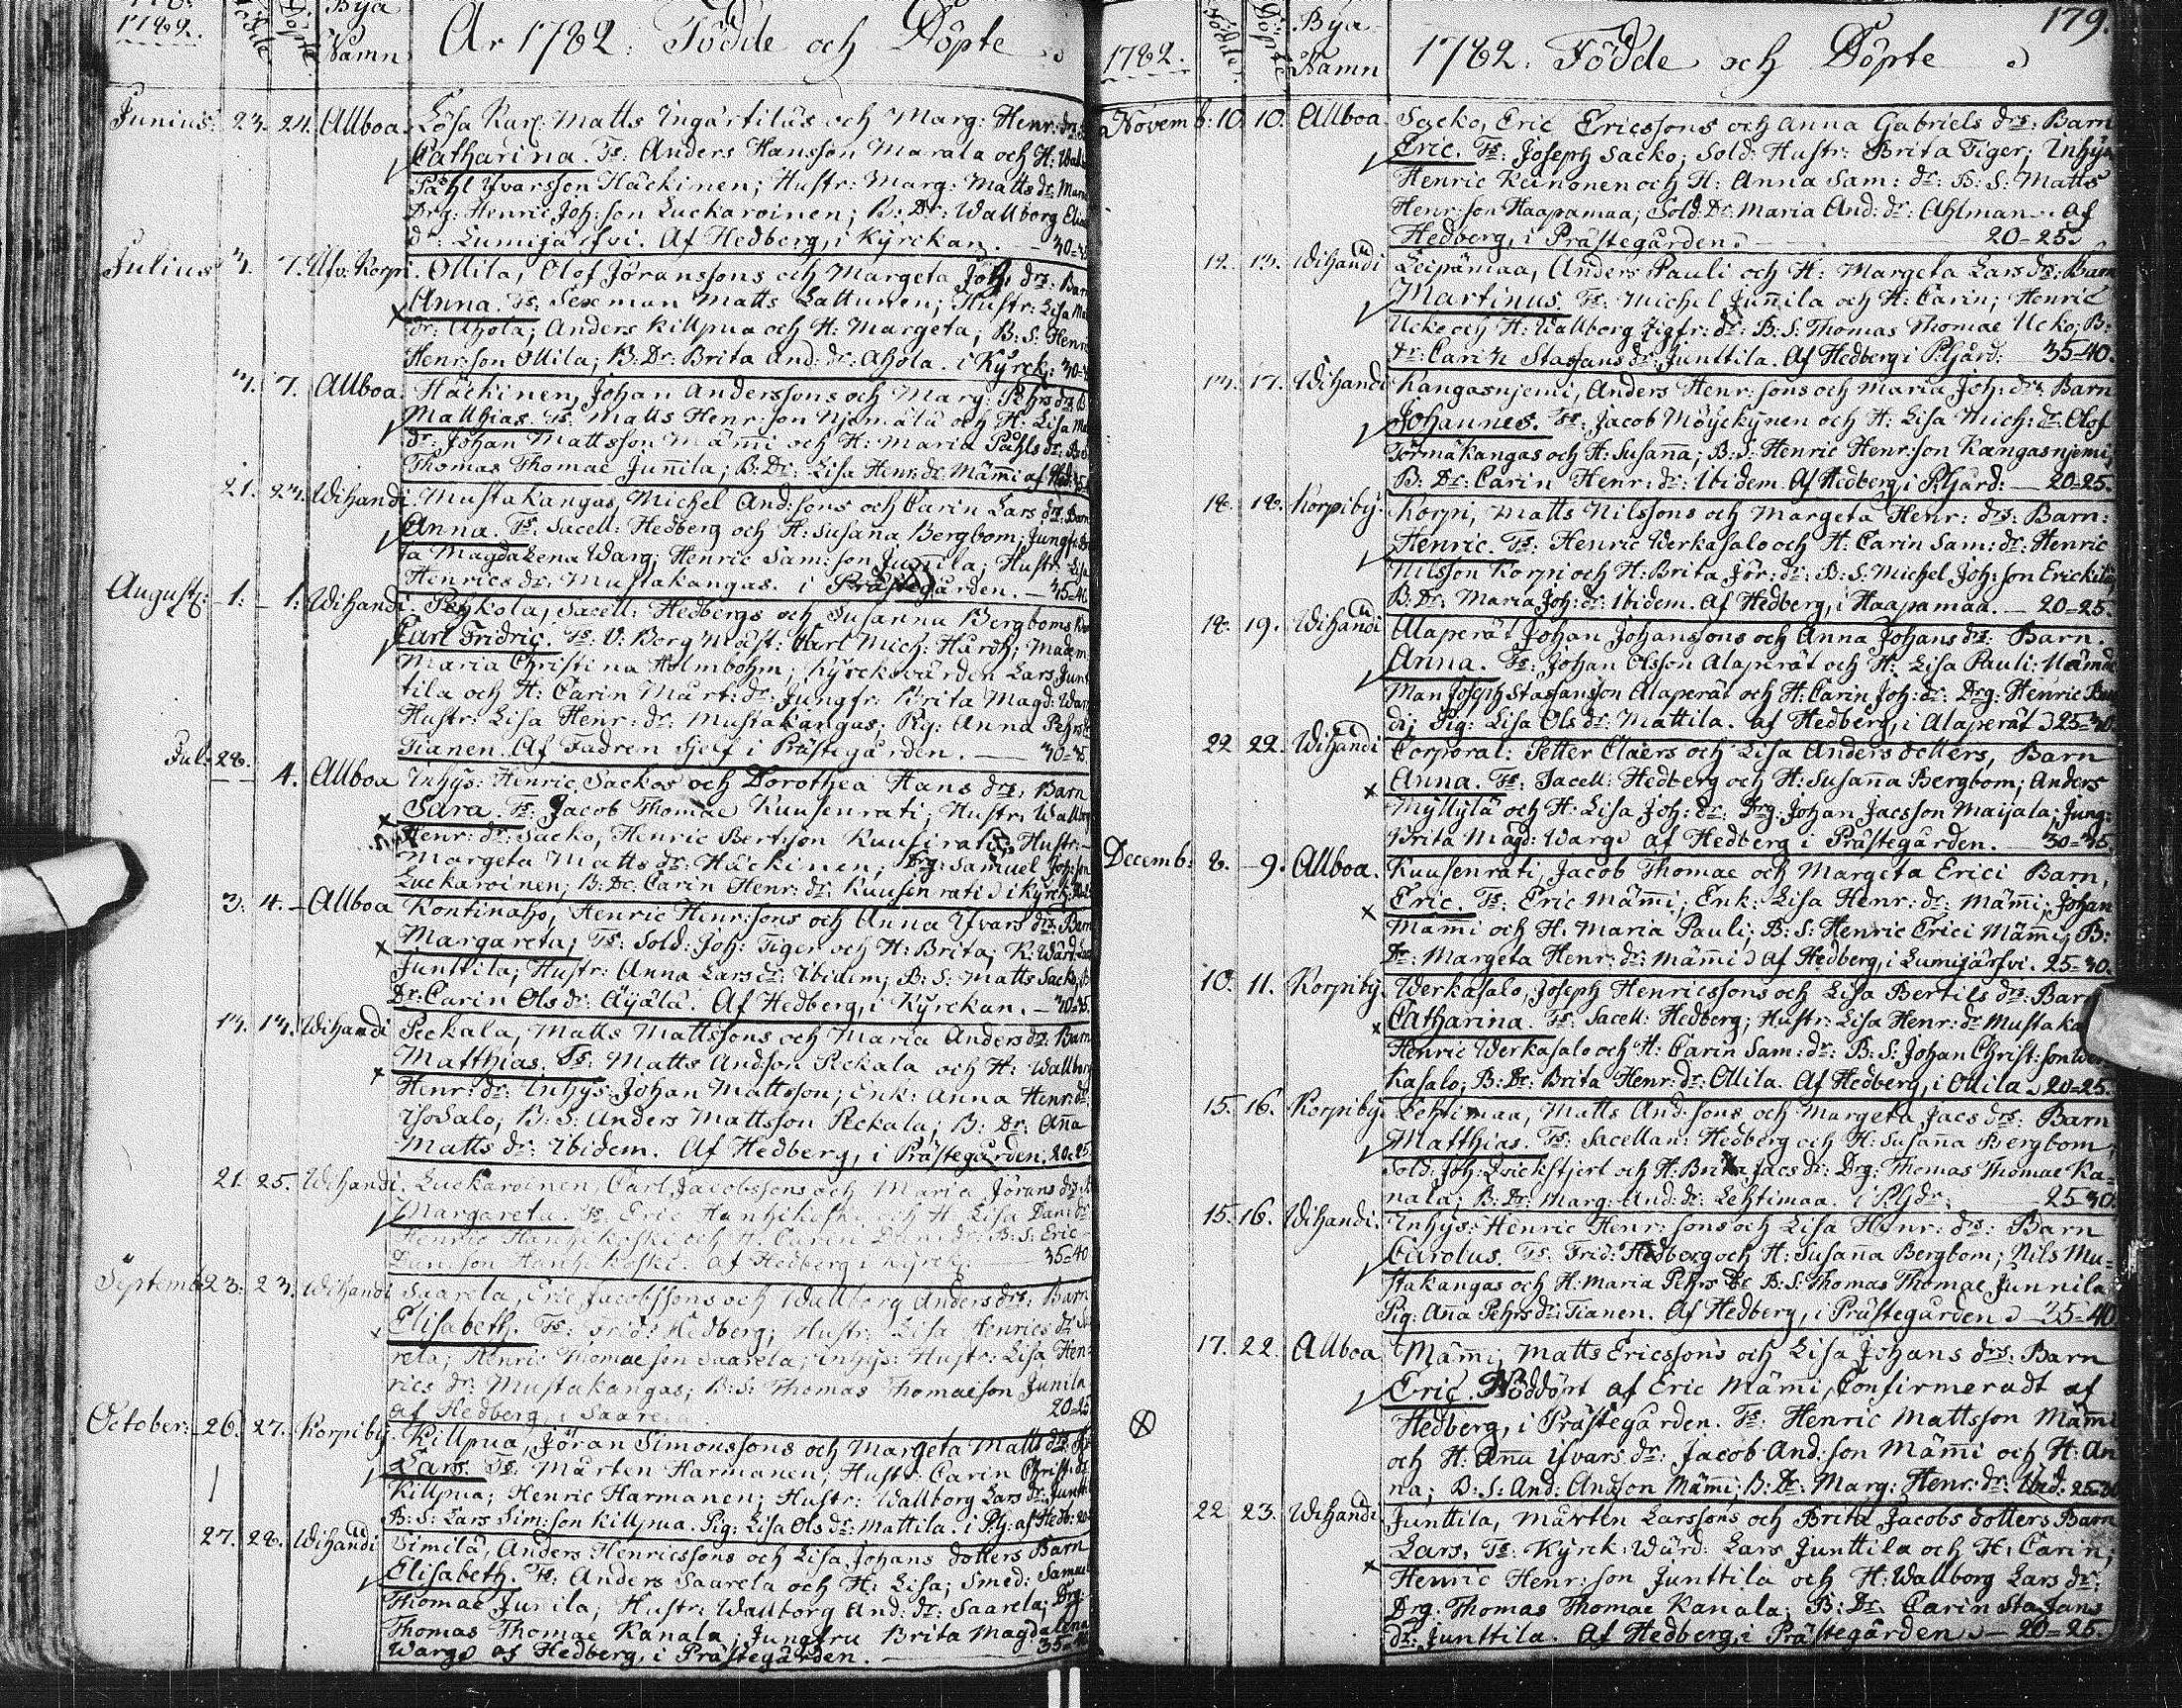 1782.
Födde
Döpte
Bya
Namn
År 1782. Födde och Döpte
Junius. 23. 24. Allboa. Lösa Karl: Matts Ingärtiläs och Marg: Henr: drs:
Catharina. Ts: Anders Hansson Marala och H:
Påhl Yvarsson Häckinen; Hustr: Marg: Matts dr:
Drg: Henric Joh:son Luckaroinen; B: Dr: Wallborg
dr: Lumijärfvi. Af Hedberg, i Kyrckan.
Julius 7. Ollila, Olof Jöranssons och Margeta Joh: drs: Barn
Anna. Ts: Sexman Matts Lattunen; Hustr: Lisa
dr: Ahola; Anders Killpua och H: Margeta; B: S: Henr
Henr:son Ollila; B: Dr: Brita And: dr: Ahola. i Kyrck:
7. Allboa. Häckinen, Johan Anderssons och Marg: Pehrs drs:
Matthias. Ts: Matts Henr:son Njemälä och H: Lisa
dr: Johan Mattsson Mämi och H: Maria Påhls dr:
Thomas Thomae Junila; B: Dr: Lisa Henr: dr: Mämi af Hed:
21. 24. Wihandi. Mustakangas, Michel And:sons och Carin Lars drs: Barn
Anna. Ts: Sacell: Hedberg och H: Susana Bergbom; Jungfr:
ta Magdalena Warg; Henric Sam:son Junila; Hustr: Lisa
Henrics dr: Mustakangas. i Prästegården.
August: 1. 1. Wihandi. Pehkola, Sacell: Hedbergs och Susanna Bergboms
Carl Fridric. Ts: Borg Mäst: Carl Mich: Hårdh; Madem:
Maria Christina Holmbohm; Kyrckovärden Lars Junt
tila och H: Carin Mårt: dr: Jungfr: Brita Magd: War
Hustr: Lisa Henr: dr: Mustakangas; Pig: Anna Pehrs
Tianen. Af Fadren Sjelf i Prästegården. 30=35
Jul: 28. 4. Allboa Inhys: Henric Sackos och Dorothea Hans drs: Barn
Sara. Ts: Jacob Thomae Kuusenrati; Hustr: Wallborg
Henr: dr: Sacko, Henric Bertson Kuusirati; Hustr:
Margeta Matts dr: Häckinen; Drg: Samuel Joh:son
Luckaroinen; B: Dr: Carin Henr: dr: Kuusinrati i Kyrck:
3. 4. Allboa Kontinaho, Henric Henr:sons och Anna Yvars drs: Barn
Margareta; Ts: Sold: Joh: Tiger och H: Brita; K: Wärd: Lars
Junttila; Hustr: Anna Lars dr: Ibidem; B: S: Matts Sacko,
Dr: Carin Ols dr: Äyälä. Af Hedberg, i Kyrckan. 30=35.
Wihandi Peckala, Matts Mattssons och Maria Anders drs: Barn
Matthias. Ts: Matts Andson Peckala och H: Wallborg
Henr: dr: Inhys: Johan Mattsson; Enk: Anna Henr: dr:
isoSalo; B: S: Anders Mattsson Peckala; B: Dr: Aña
Matts dr: Ibidem. Af Hedberg, i Prästegården. 20=25
21. 25. Wihandi. Luckaroinen, Carl Jacobssons och Maria Jörans drs:
Margareta. Ts: Eric Hanhikoski och H: Lisa Dani dr:
Henric Hanhikoski och H: Carin B: S: Eric
Dan:son Hanhikoski. af Hedberg i Kyrck: 35=40
Septemb: 23. 23. Wihandi Saarela, Eric Jacobssons och Wallborg Anders drs: Barn
Elisabeth. Ts: Frid: Hedberg; Hustr: Lisa Henrics dr:
rela; Henric Thomae son Saarela; Inhys: Hustr: Lisa Hen
rics dr: Mustakangas; B: S: Thomas Thomaeson Junila
af Hedberg i Saarela. 20=25
October: 26. 27. Korpiby. Killpua, Jöran Simonssons och Margeta Matts drs:
Lars. Ts: Mårten Harmanen; Hustr: Carin Christ: dr:
Killpua; Henric Harmanen; Hustr: Wallborg Lars dr: Juntti
B: S: Lars Sim:son Killpua. Pig: Lisa Ols dr: Mattila. i P:g: af Hedb:
27. 28. Wihandi Vimilä, Anders Henricssons och Lisa Johans dotters Barn
Elisabeth. Ts: Anders Saarela och H: Lisa; Smed: Samuel
Thomae Junila; Hustr: Wallborg And: dr: Saarela; Drg:
Thomas Thomae Kanala; Jungfru Brita Magdalena
Warg af Hedberg, i Prästegården.
179.
1782.
Födde.
Döpte
Bya
Namn
1782. Födde och Döpte
Novemb: 10. 10. Allboa. Sacko, Eric Ericssons och Anna Gabriels drs: Barn
Eric. Ts: Joseph Sacko; Sold: Hustr: Brita Tiger; Inhys
Henric Keinonen och H: Anna Sam: dr: B: S: Matts
Henr:son Haapamaa; Sold: Dr: Maria And: dr: Ahlman. Af
Hedberg, i Prästegården. 20=25.
12. 13. Wihandi Leipämaa, Anders Pauli och H: Margeta Lars drs: Barn
Martinus. Ts: Michel Junila och H: Carin; Henric
Ucko och H: Wallborg Sigfr: dr: B: S: Thomas Thomae Ucko; B:
dr: Carin Staffans dr: Junttila. Af Hedberg i P:gård: 35=40.
17. Wihandi Kangasnjemi, Anders Henr:sons och Maria Joh: drs: Barn
Johannes. Ts: Jacob Möyckynen och H: Lisa Mich: dr: Olof
Törmäkangas och H: Susaña; B: S: Henric Henr:son Kangasnjemi;
B: Dr: Carin Henr: dr: Ibidem. Af Hedberg i P:gård: 20=25.
18. 18. Korpiby. Korpi, Matts Nilssons och Margeta Henr: drs: Barn:
Henric. Ts: Henric Werkasalo och H: Carin Sam: dr: Henric
Nilsson Korpi och H: Brita Jör: dr: B: S: Michel Joh:son Erickilä;
B: Dr: Maria Joh: dr: Ibidem. Af Hedberg, i Haapamaa. 20=25.
18. 19. Wihandi Alaperät Johan Johanssons och Anna Johans drs: Barn.
Anna. Ts: Johan Olsson Alaperät och H: Lisa Pauli: Nämde
Man Joseph Staffansson Alaperät och H: Carin Joh: dr: Drg: Henric
di; Pig: Lisa Ols dr: Mattila. af Hedberg, i Alaperät 25=30
22. 22. Wihandi Corporal: Petter Claers och Lisa Anders dotters, Barn
Anna. Ts: Sacell: Hedberg och H: Susaña Bergbom; Anders
Myllylä och H: Lisa Joh: dr: Drg: Johan Jacsson Maijala; Jung:
Brita Magd: Warg af Hedberg i Prästegården. 30=35
Decemb: 8. 9. Allboa. Kuusenrati, Jacob Thomae och Margeta Erici Barn,
Eric. Ts: Eric Mämi; Enk: Lisa Henr: dr: Mämi; Johan
Mämi och H. Maria Pauli; B: S: Henric Erici Mämi; B:
Dr: Margeta Henr: dr: Mämi af Hedberg, i Lumijärfvi. 25=30.
10. 11. Korpiby Werkasalo, Joseph Henricssons och Lisa Bertils drs: Barn
Catharina. Ts: Sacell: Hedberg; Hustr: Lisa Henr: dr: Mustaka
Henric Werkasalo och H: Carin Sam: dr: B: S: Johan Christ:son Wer
kasalo; B: Dr: Brita Henr: dr: Ollila. Af Hedberg, i Ollila. 20=25.
15. 16. Korpiby Lehtimaa, Matts And:sons och Margeta Jacs drs: Barn
Matthias. Ts: Sacellan: Hedberg och H: Susaña Bergbom;
Sold: Joh: Qvickstjert och H: Brita Jacs dr: Drg: Thomas Thomae Ka=
nala; B: Dr: Marg: And: dr: Lehtimaa. i P:gdr: 25=30.
15. 16. Wihandi. Inhys: Henric Henr:sons och Lisa Henr: drs: Barn
Carolus. Ts: Frid: Hedberg och H: Susaña Bergbom; Nils Mu=
stakangas och H: Maria Pehrs dr: B: S: Thomas Thomae Junnila
Pig: Aña Pehrs dr: Tianen. Af Hedberg, i Prästegården 35=40
17. 22. Allboa Mämi, Matts Ericssons och Lisa Johans drs: Barn
Eric. Nöddöpt af Eric Mämi, Confirmeradt af
Hedberg, i Prästegården. Ts: Henric Mattsson Mämi
och H: Aña Yvars dr: Jacob And:son Mämi och H: An
na; B: S: And: Andsson Mämi; B: Dr: Marg: Henr: dr: Ibid.
22 23. Wihandi Junttila, Mårten Larssons och Brita Jacobs dotters Barn
Lars. Ts: Kyrck: Wärd: Lars Junttila och H: Carin;
Henric Henr:son Junttila och H: Wallborg Lars dr:
Drg: Thomas Thomae Kanala; B: Dr: Carin Staffans
dr: Junttila. Af Hedberg, i Prästegården 20=25.